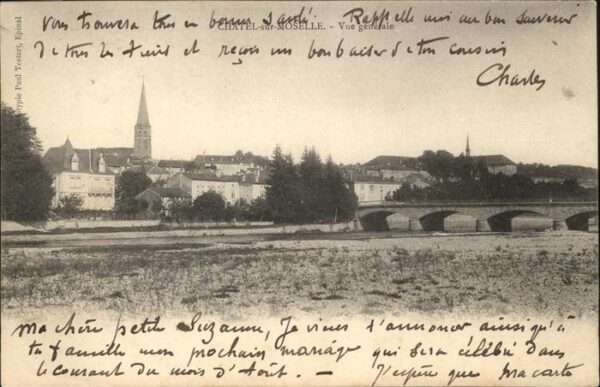 vous trouvera tous en bonne santé. Rappelle moi au bon souvenir
CHATEL-sur-MOSELLE. - Vue générale
de tous les tiens et reçois un bon baiser de ton cousin
Charles
Phototypie Paul Testart, Epinal
Ma chère petite Suzanne, Je viens t'annoncer ainsi qu'à
ta famille mon prochain mariage qui sera célébré dans
le courant du mois d'Août. - J'espère que ma carte